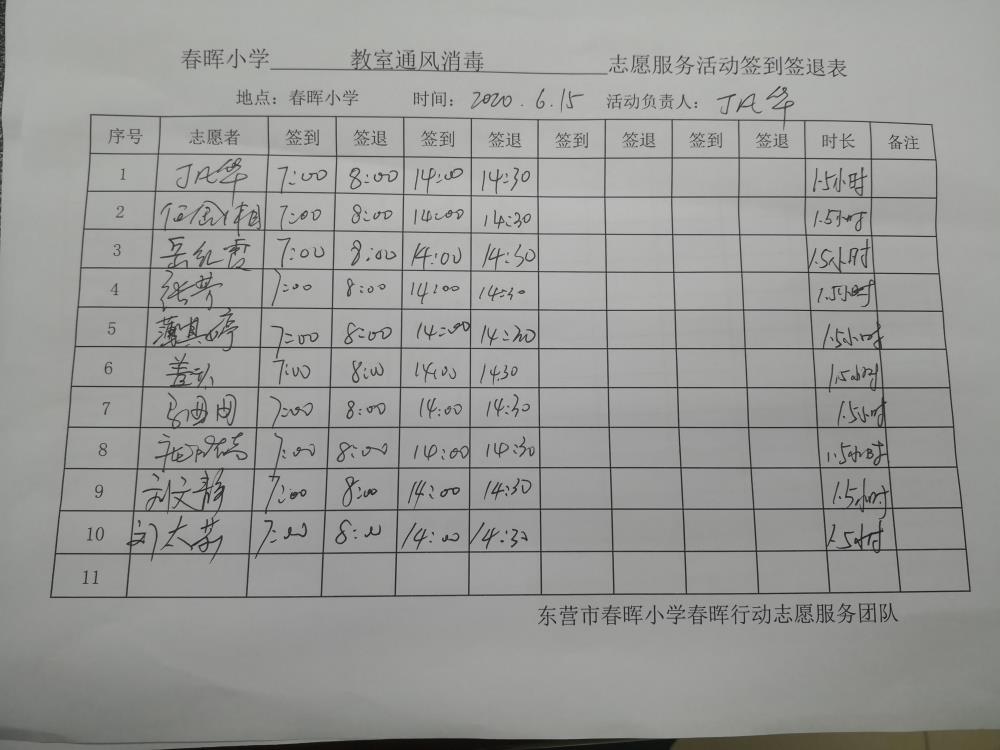 春晖小学 教室通风消毒 志愿服务活动签到签退表
地点：春晖小学 时间：2020.6.15 活动负责人：丁凡华
序号 志愿者 签到 签退 签到 签退 签到 签退 签到 签退 时长 备注
1 丁凡华 7:00 8:00 14:00 14:30 1.5小时
2 7:00 8:00 14:00 14:30 1.5小时
3 岳红霞 7:00 8:00 14:00 14:30 1.5小时
4 张芳 7:00 8:00 14:00 14:30 1.5小时
5 薄其婷 7:00 8:00 14:00 14:30 1.5小时
6 7:00 8:00 14:00 14:30 1.5小时
7 7:00 8:00 14:00 14:30 1.5小时
8 7:00 8:00 14:00 14:30 1.5小时
9 刘文静 7:00 8:00 14:00 14:30 1.5小时
10 7:00 8:00 14:00 14:30 1.5小时
11
东营市春晖小学春晖行动志愿服务团队